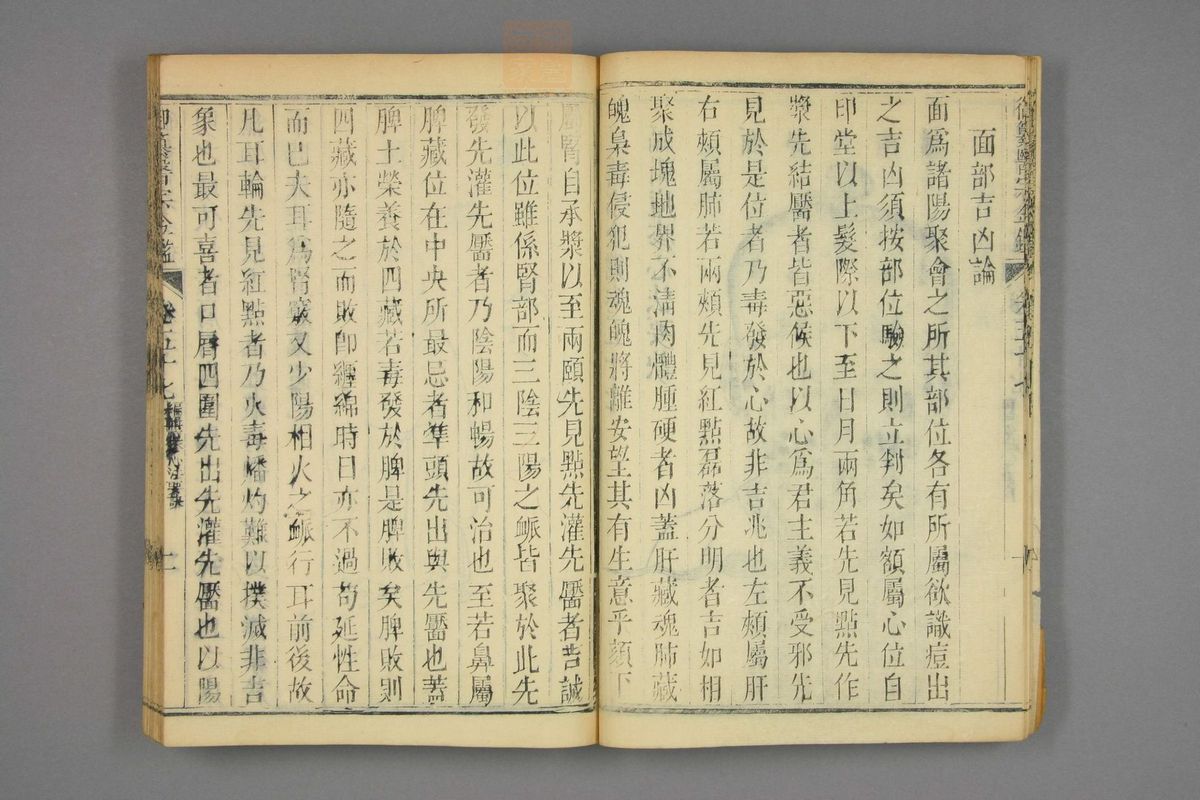 面部吉凶論
面爲諸陽聚會之所其部位各有所屬欲識痘出
之吉凶須按部位驗之則立判矣如額屬心位自
印堂以上髮際以下至日月兩角若先見點先作
漿先結靨者皆惡候也以心爲君主義不受邪先
見於是位者乃毒發於心故非吉兆也左頰屬肝
右頰屬肺若兩頰先見紅點磊落分明者吉如相
聚成塊地界不清肉體腫硬者凶蓋肝藏魂肺藏
魄梟毒侵犯則魂魄將離安望其有生意乎頦下
屬腎自承漿以至兩頤先見點先灌先靨者吉誠
以此位雖係腎部而三陰三陽之脈皆聚於此先
發先灌先靨者乃陰陽和暢故可治也至若鼻屬
脾藏位在中央所最忌者準頭先出與先靨也蓋
脾土榮養於四藏若毒發於脾是脾敗矣脾敗則
四藏亦隨之而敗即纏綿時日亦不過苟延性命
而已夫耳爲腎竅又少陽相火之脈行耳前後故
凡耳輪先見紅點者乃火毒燔灼難以撲滅非吉
象也最可喜者口唇四圍先出先灌先靨也以陽
御纂醫宗金鑑 卷五十七